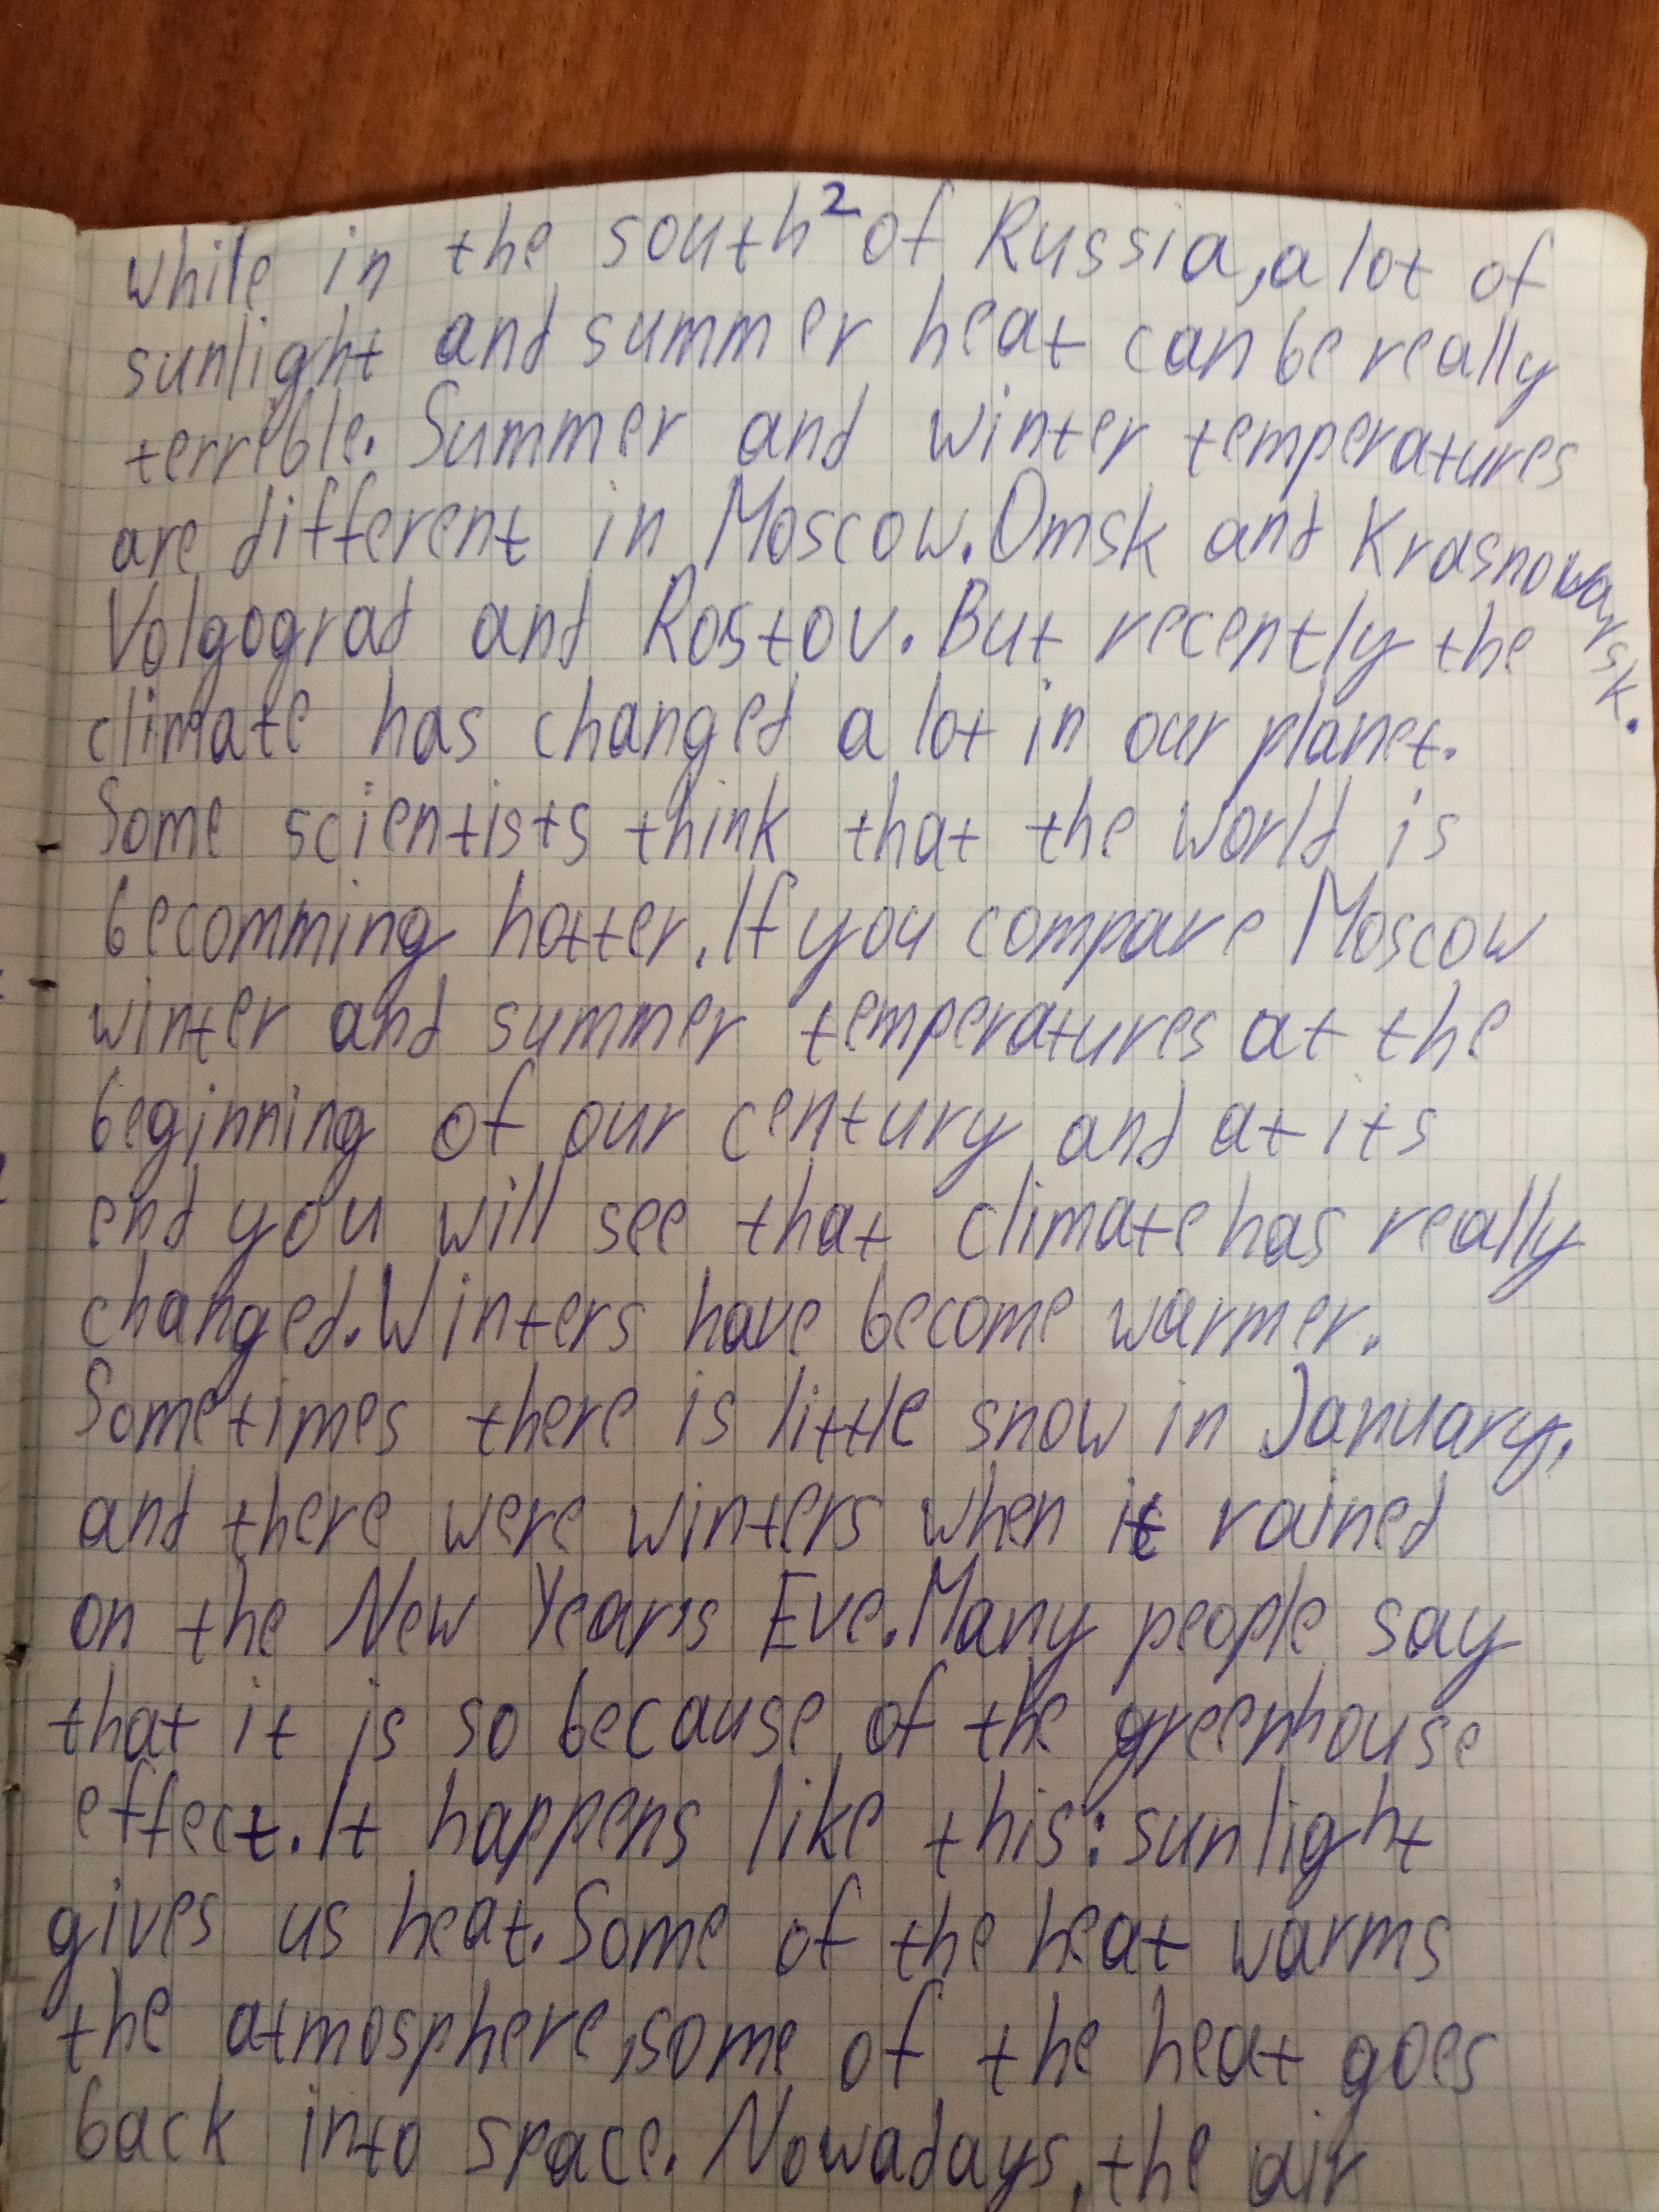 2
while in the south of Russia, a lot of
sunlight and summer heat can be really
terreble. Summer and winter temperatures
are different in Moscow. Omsk and Krasnowarsk.
Volgograd and Rostov. But recently the
climate has changed a lot in our planet.
Some scientists think that the world is
becomming hotter. If you compare Moscow
winter and summer temperatures at the
beginning of our century and at its
end you will see that climate has really
changed. Winters have become warmer.
Sometimes there is little snow in January,
and there were winters when it rained
on the New Year's Eve. Many people say
that it is so because of the greenhouse
effect. It happens like this: sunlight
gives us heat. Some of the heat warms
the atmosphere, some of the heat goes
back into space. Nowadays, the air